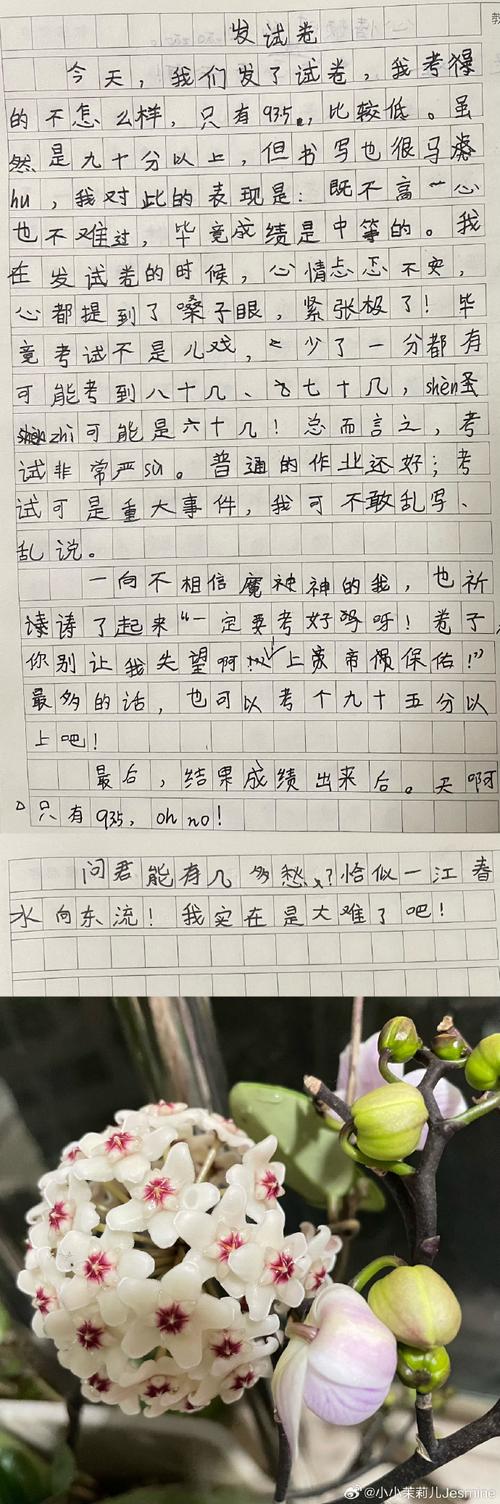 发试卷
今天，我们发了试卷，我考得
的不怎么样，只有93.5，比较低。虽
然是九十分以上，但书写也很马
hu，我对此的表现是：既不高心
也不难过，毕竟成绩是中等的。我
在发试卷的时候，心情忐忑不安，
心都提到了嗓子眼，紧张极了！毕
竟考试不是儿戏，少了一分都有
可能考到八十几、七十几，shèn
zhì可能是六十几！总而言之，考
试非常严sù。普通的作业还好；考
试可是重大事件，我可不敢乱写、
乱说。
一向不相信魔神神的我，也祈
祷了起来“一定要考好呀！卷子，
你别让我失望啊！上帝保佑！”
最多的话，也可以考个九十五分以
上吧！
最后，结果成绩出来后。天啊
只有93.5，oh no！
问君能有几多愁？恰似一江春
水向东流！我实在是太难了吧！
@小小茉莉儿Jesmine